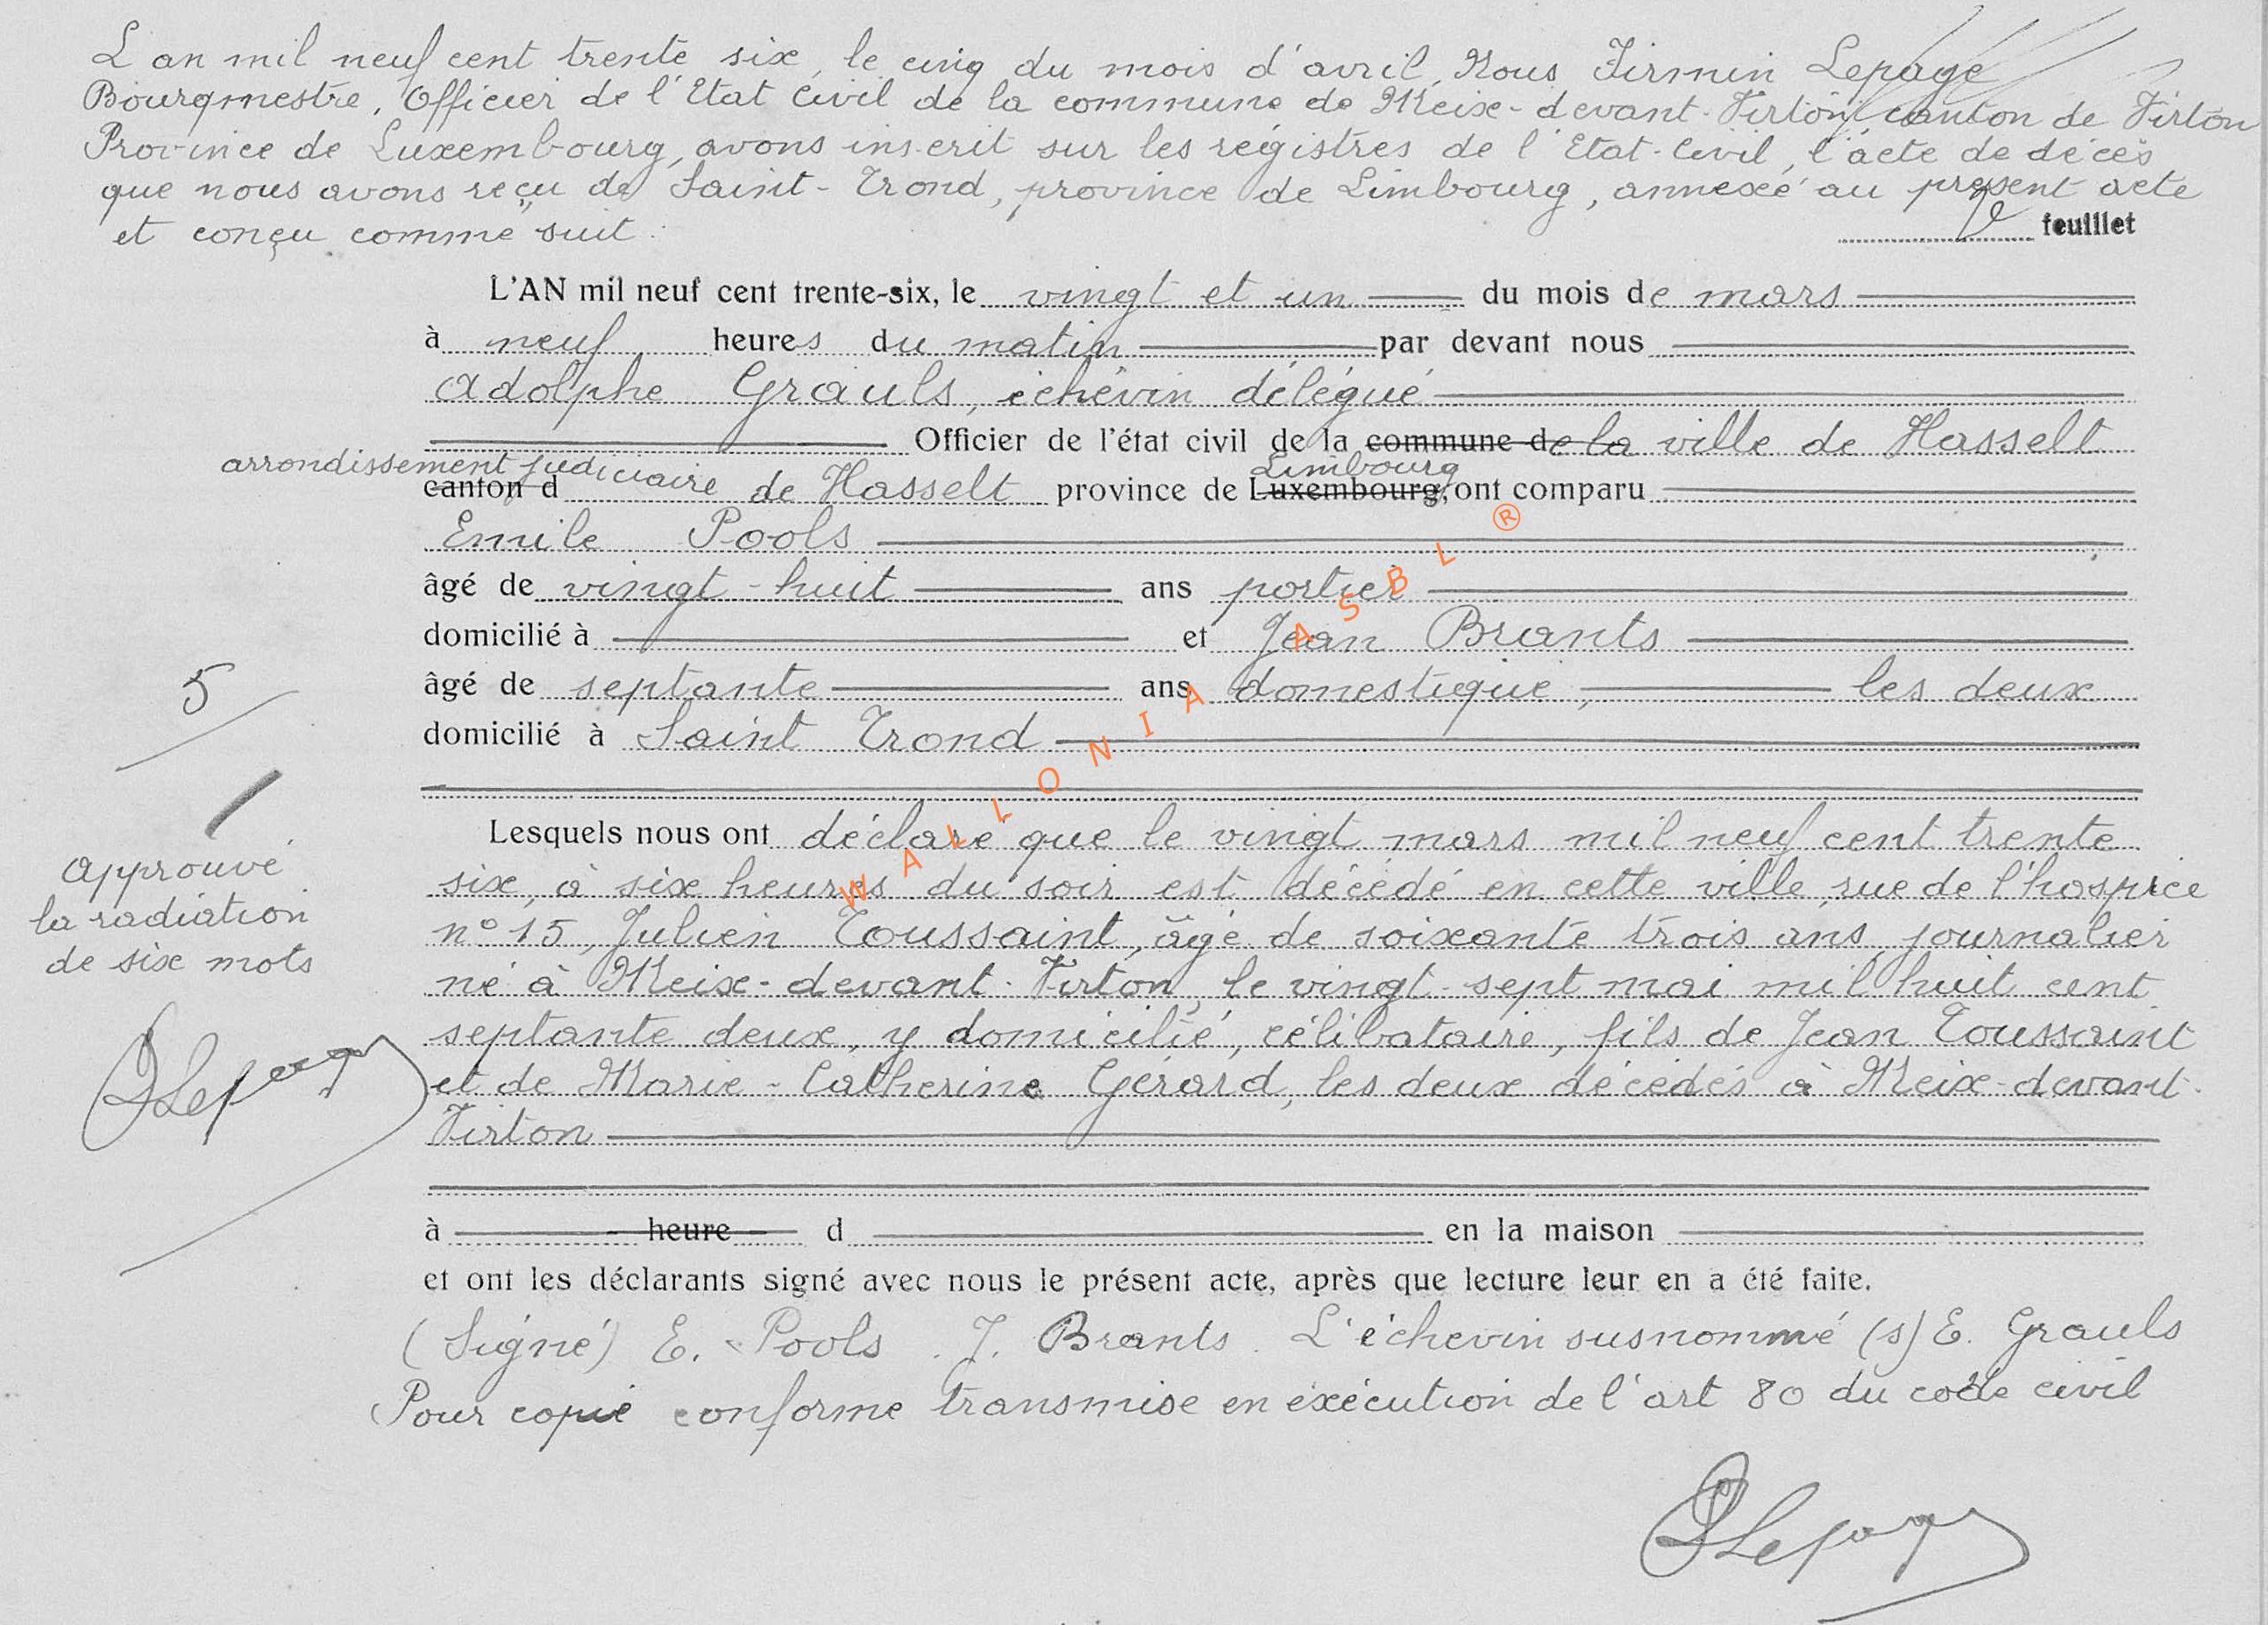 L'an mil neuf cent trente six, le cinq du mois d'avril, Nous Firmin Lepage
Bourgmestre, Officier de l'Etat Civil de la commune de Meix-devant-Virton, canton de Virton
Province de Luxembourg, avons inscrit sur les régistres de l'Etat-Civil, l'acte de décès
que nous avons reçu de Saint-Trond, province de Limbourg, annexé au présent acte
et conçu comme suit :
feuillet
L'AN mil neuf cent trente-six, le vingt et un du mois de mars
à neuf heures du matin par devant nous
Adolphe Grauls, échevin délégué
Officier de l'état civil de la commune de la ville de Hasselt
arrondissement judiciaire Limbourg
canton d de Hasselt province de Luxembourg, ont comparu
Emile Pools
âgé de vingt-huit ans portier
domicilié à et Jean Brants
âgé de septante ans domestique, les deux
domicilié à Saint Trond
5
Lesquels nous ont déclaré que le vingt mars mil neuf cent trente
six, à six heures du soir est décédé en cette ville, rue de l'hospice
n° 15, Julien Toussaint, âgé de soixante trois ans, journalier
né à Meix-devant-Virton, le vingt-sept mai mil huit cent
septante deux, y domicilié, célibataire, fils de Jean Toussaint
et de Marie-Catherine Gérard, les deux décédés à Meix-devant-
Virton
approuvé
la radiation
de six mots
FLepage
à heure d en la maison
et ont les déclarants signé avec nous le présent acte, après que lecture leur en a été faite.
(Signé) E. Pools. J. Brants. L'échevin susnommé (s) E. Grauls
Pour copie conforme transmise en exécution de l'art 80 du code civil
FLepage
WALLONIA ASBL ®